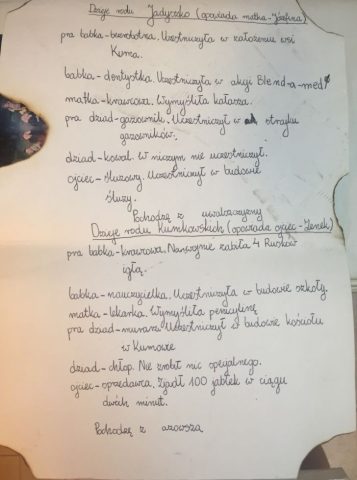 Dzieje rodu Jadyczko (opowiada matka-Józefina)
pra babka-bezrobotna. Uczestniczyła w założeniu wsi
Kuma.
babka-dentystka. Uczestniczyła w akcji Blend-a-med
matka-krawcowa. Wymyśliła kałasza.
pra dziad-gazownik. Uczestniczył w strajku
gazowników.
dziad-kowal. W niczym nie uczestniczył.
ojciec-śluzowy. Uczestniczył w budowie
śluzy.
Pochodzę z
Dzieje rodu Kumkowskich (opowiada ojciec-Zenek)
pra babka-krawcowa. Na wojnie zabiła 4 Rusków
igłą.
babka-nauczycielka. Uczestniczyła w budowie szkoły.
matka-lekarka. Wymyśliła penicylinę
pra dziad-murarz. Uczestniczył w budowie kościoła
w Kumowie
dziad-chłop. Nie zrobił nic specjalnego.
ojciec-sprzedawca. Zjadł 100 jabłek w ciągu
dwóch minut.
Pochodzę z